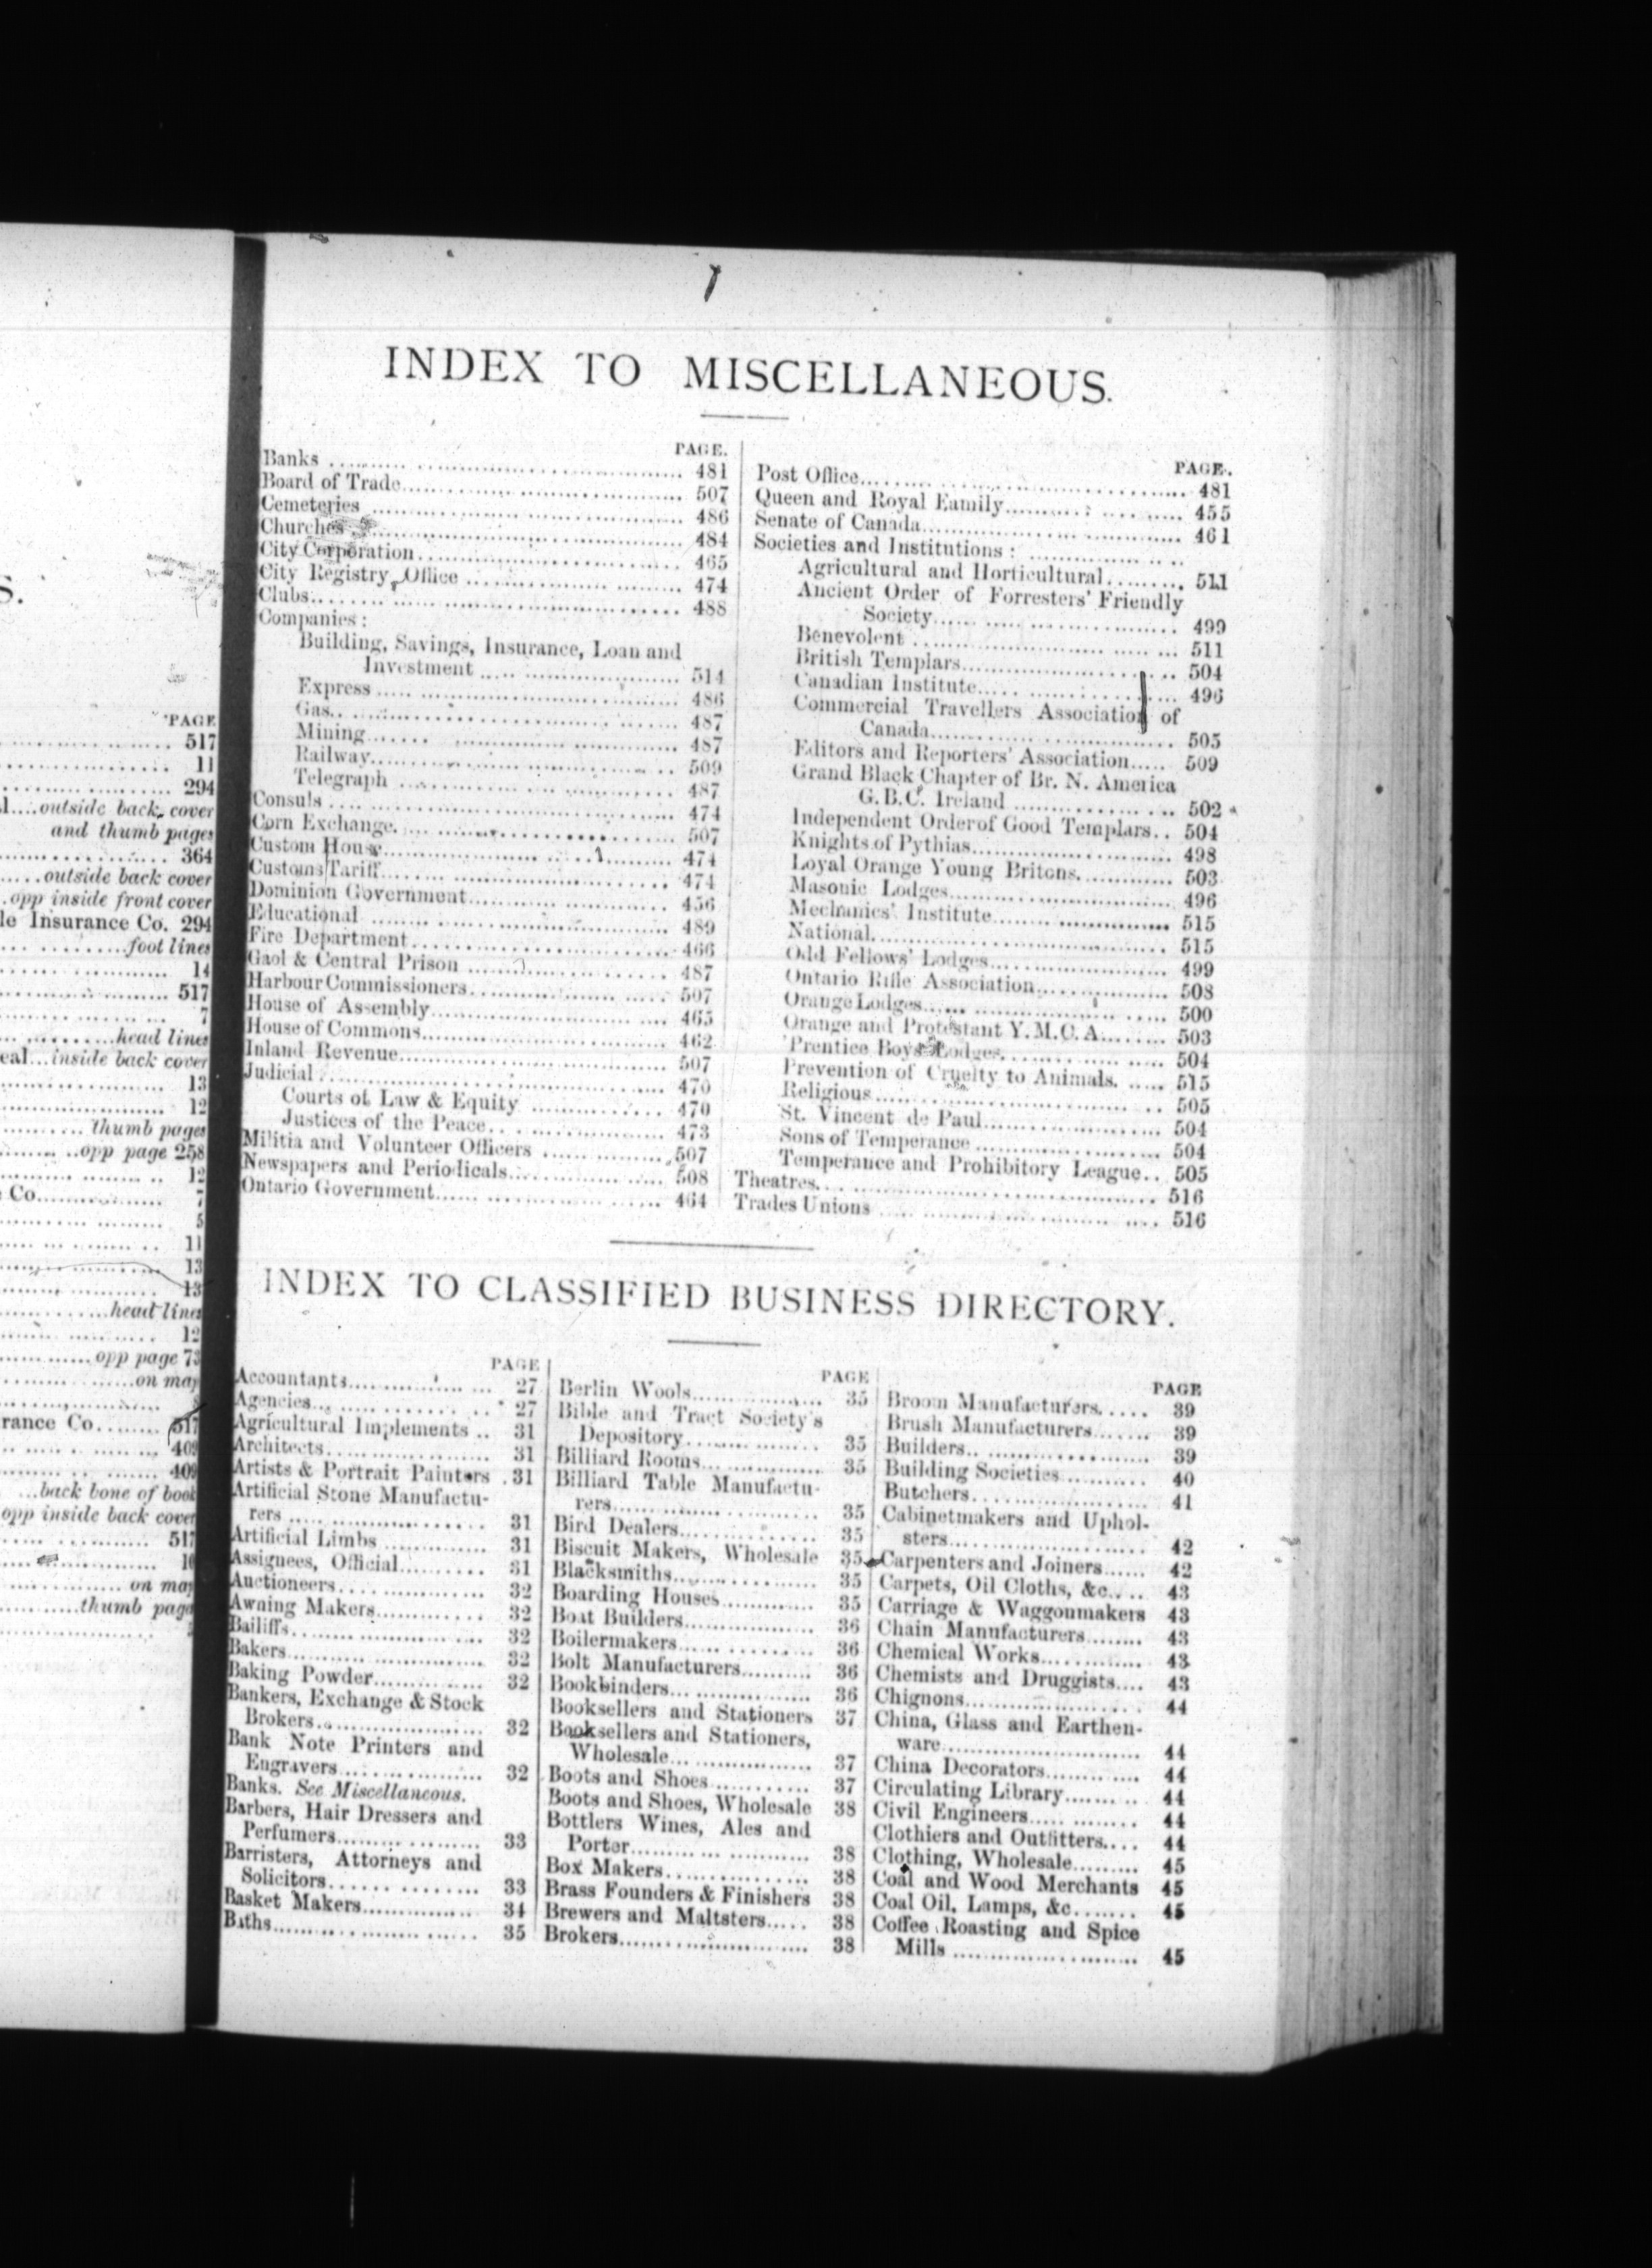 S.
PAGE
517
11
294
outside back cover
and thumb pages
364
outside back cover
opp inside front cover
le Insurance Co. 294
foot lines
14
517
7
head lines
eal...inside back cover
13
12
thumb pages
opp page 258
12
Co. 7
5
11
13
13
head lines
12
opp page 73
on map
rance Co. 517
409
409
back bone of book
opp inside back cover
517
on map
thumb page
INDEX TO MISCELLANEOUS.
PAGE.
Banks 481
Board of Trade 507
Cemeteries 486
Churches 484
City Corporation 465
City Registry Office 474
Clubs 488
Companies :
Building, Savings, Insurance, Loan and
Investment 514
Express 486
Gas 487
Mining 487
Railway 509
Telegraph 487
Consuls 474
Corn Exchange 507
Custom House 474
Customs Tariff 474
Dominion Government 456
Educational 489
Fire Department 466
Gaol & Central Prison 487
Harbour Commissioners 507
House of Assembly 465
House of Commons 462
Inland Revenue 507
Judicial 470
Courts of Law & Equity 470
Justices of the Peace 473
Militia and Volunteer Officers 507
Newspapers and Periodicals 508
Ontario Government 464
PAGE.
Post Office 481
Queen and Royal Family 455
Senate of Canada 461
Societies and Institutions :
Agricultural and Horticultural 511
Ancient Order of Forresters' Friendly
Society 499
Benevolent 511
British Templars 504
Canadian Institute 496
Commercial Travellers Association of
Canada 505
Editors and Reporters' Association 509
Grand Black Chapter of Br. N. America
G. B. C. Ireland 502
Independent Order of Good Templars 504
Knights of Pythias 498
Loyal Orange Young Britons 503
Masonic Lodges 496
Mechanics' Institute 515
National 515
Odd Fellows' Lodges 499
Ontario Rifle Association 508
Orange Lodges 500
Orange and Protestant Y. M. C. A. 503
'Prentice Boys Lodges 504
Prevention of Cruelty to Animals 515
Religious 505
St. Vincent de Paul 504
Sons of Temperance 504
Temperance and Prohibitory League 505
Theatres 516
Trades Unions 516
INDEX TO CLASSIFIED BUSINESS DIRECTORY.
PAGE
Accountants 27
Agencies 27
Agricultural Implements 31
Architects 31
Artists & Portrait Painters 31
Artificial Stone Manufactu-
rers 31
Artificial Limbs 31
Assignees, Official 31
Auctioneers 32
Awning Makers 32
Bailiffs 32
Bakers 32
Baking Powder 32
Bankers, Exchange & Stock
Brokers 32
Bank Note Printers and
Engravers 32
Banks. See Miscellaneous.
Barbers, Hair Dressers and
Perfumers 33
Barristers, Attorneys and
Solicitors 33
Basket Makers 34
Baths 35
PAGE
Berlin Wools 35
Bible and Tract Society's
Depository 35
Billiard Rooms 35
Billiard Table Manufactu-
rers 35
Bird Dealers 35
Biscuit Makers, Wholesale 35
Blacksmiths 35
Boarding Houses 35
Boat Builders 36
Boilermakers 36
Bolt Manufacturers 36
Bookbinders 36
Booksellers and Stationers 37
Booksellers and Stationers,
Wholesale 37
Boots and Shoes 37
Boots and Shoes, Wholesale 38
Bottlers Wines, Ales and
Porter 38
Box Makers 38
Brass Founders & Finishers 38
Brewers and Maltsters 38
Brokers 38
PAGE
Broom Manufacturers 39
Brush Manufacturers 39
Builders 39
Building Societies 40
Butchers 41
Cabinetmakers and Uphol-
sters 42
Carpenters and Joiners 42
Carpets, Oil Cloths, &c. 43
Carriage & Waggonmakers 43
Chain Manufacturers 43
Chemical Works 43
Chemists and Druggists 43
Chignons 44
China, Glass and Earthen-
ware 44
China Decorators 44
Circulating Library 44
Civil Engineers 44
Clothiers and Outfitters 44
Clothing, Wholesale 45
Coal and Wood Merchants 45
Coal Oil, Lamps, &c. 45
Coffee Roasting and Spice
Mills 45